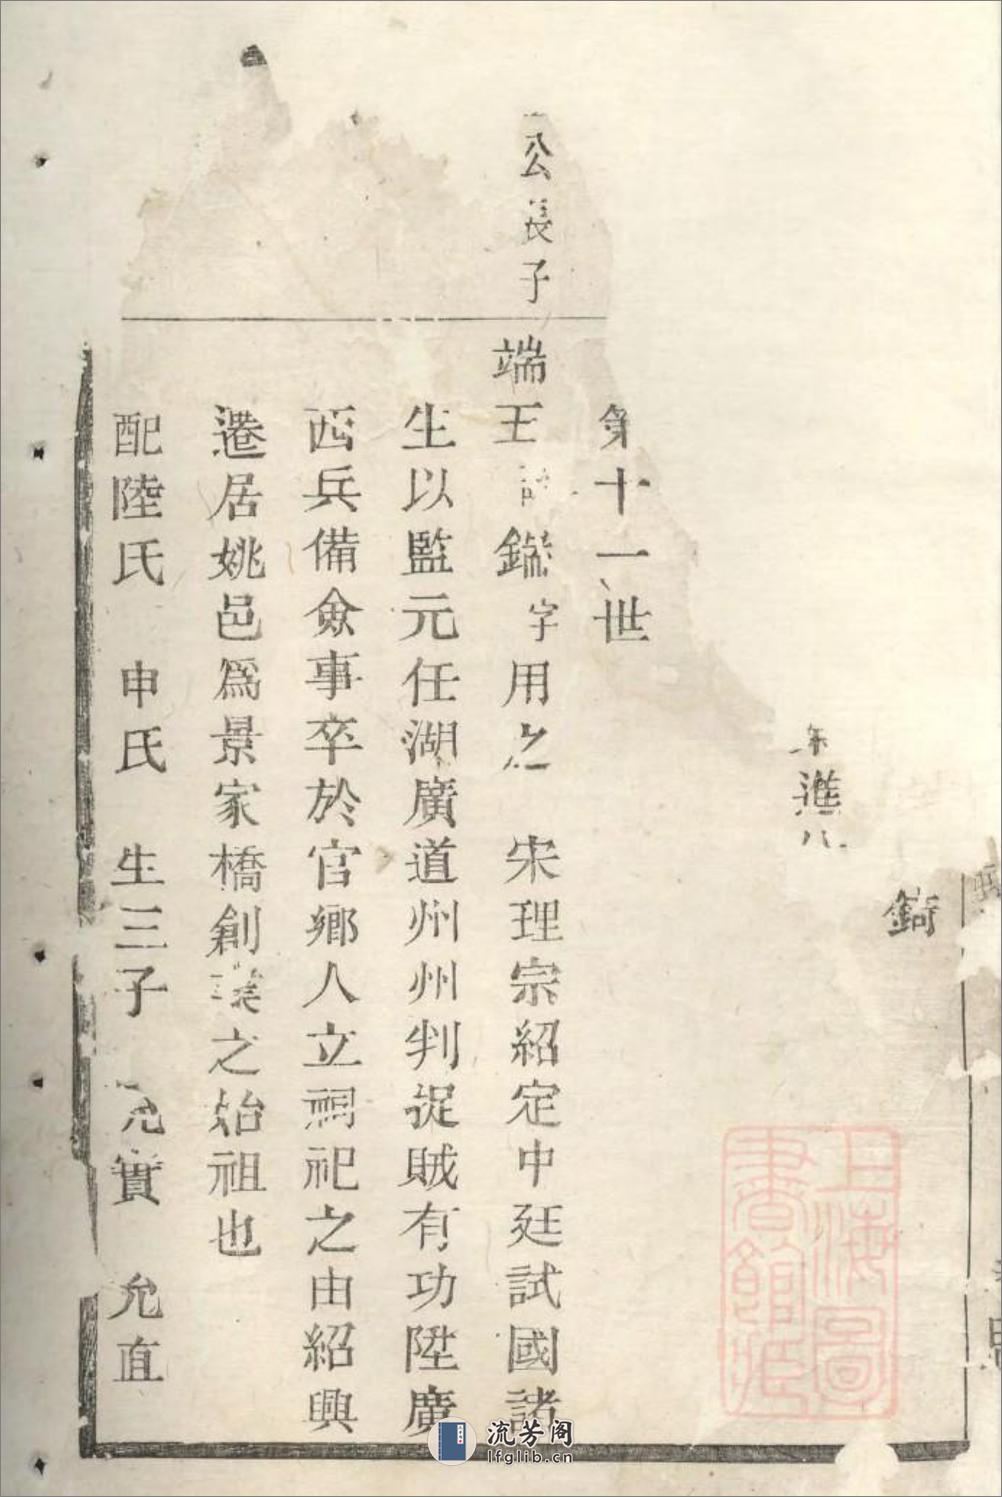 錡
進
第十一世
公長子
端王 鑑字用之 宋理宗紹定中廷試國諸
生以監元任湖廣道州州判捉賊有功陞廣
西兵備僉事卒於官鄉人立祠祀之由紹興
遷居姚邑爲景家橋創業之始祖也
配陸氏 申氏 生三子 允實 允直
上海圖書館藏
流芳阁
lfglib.cn